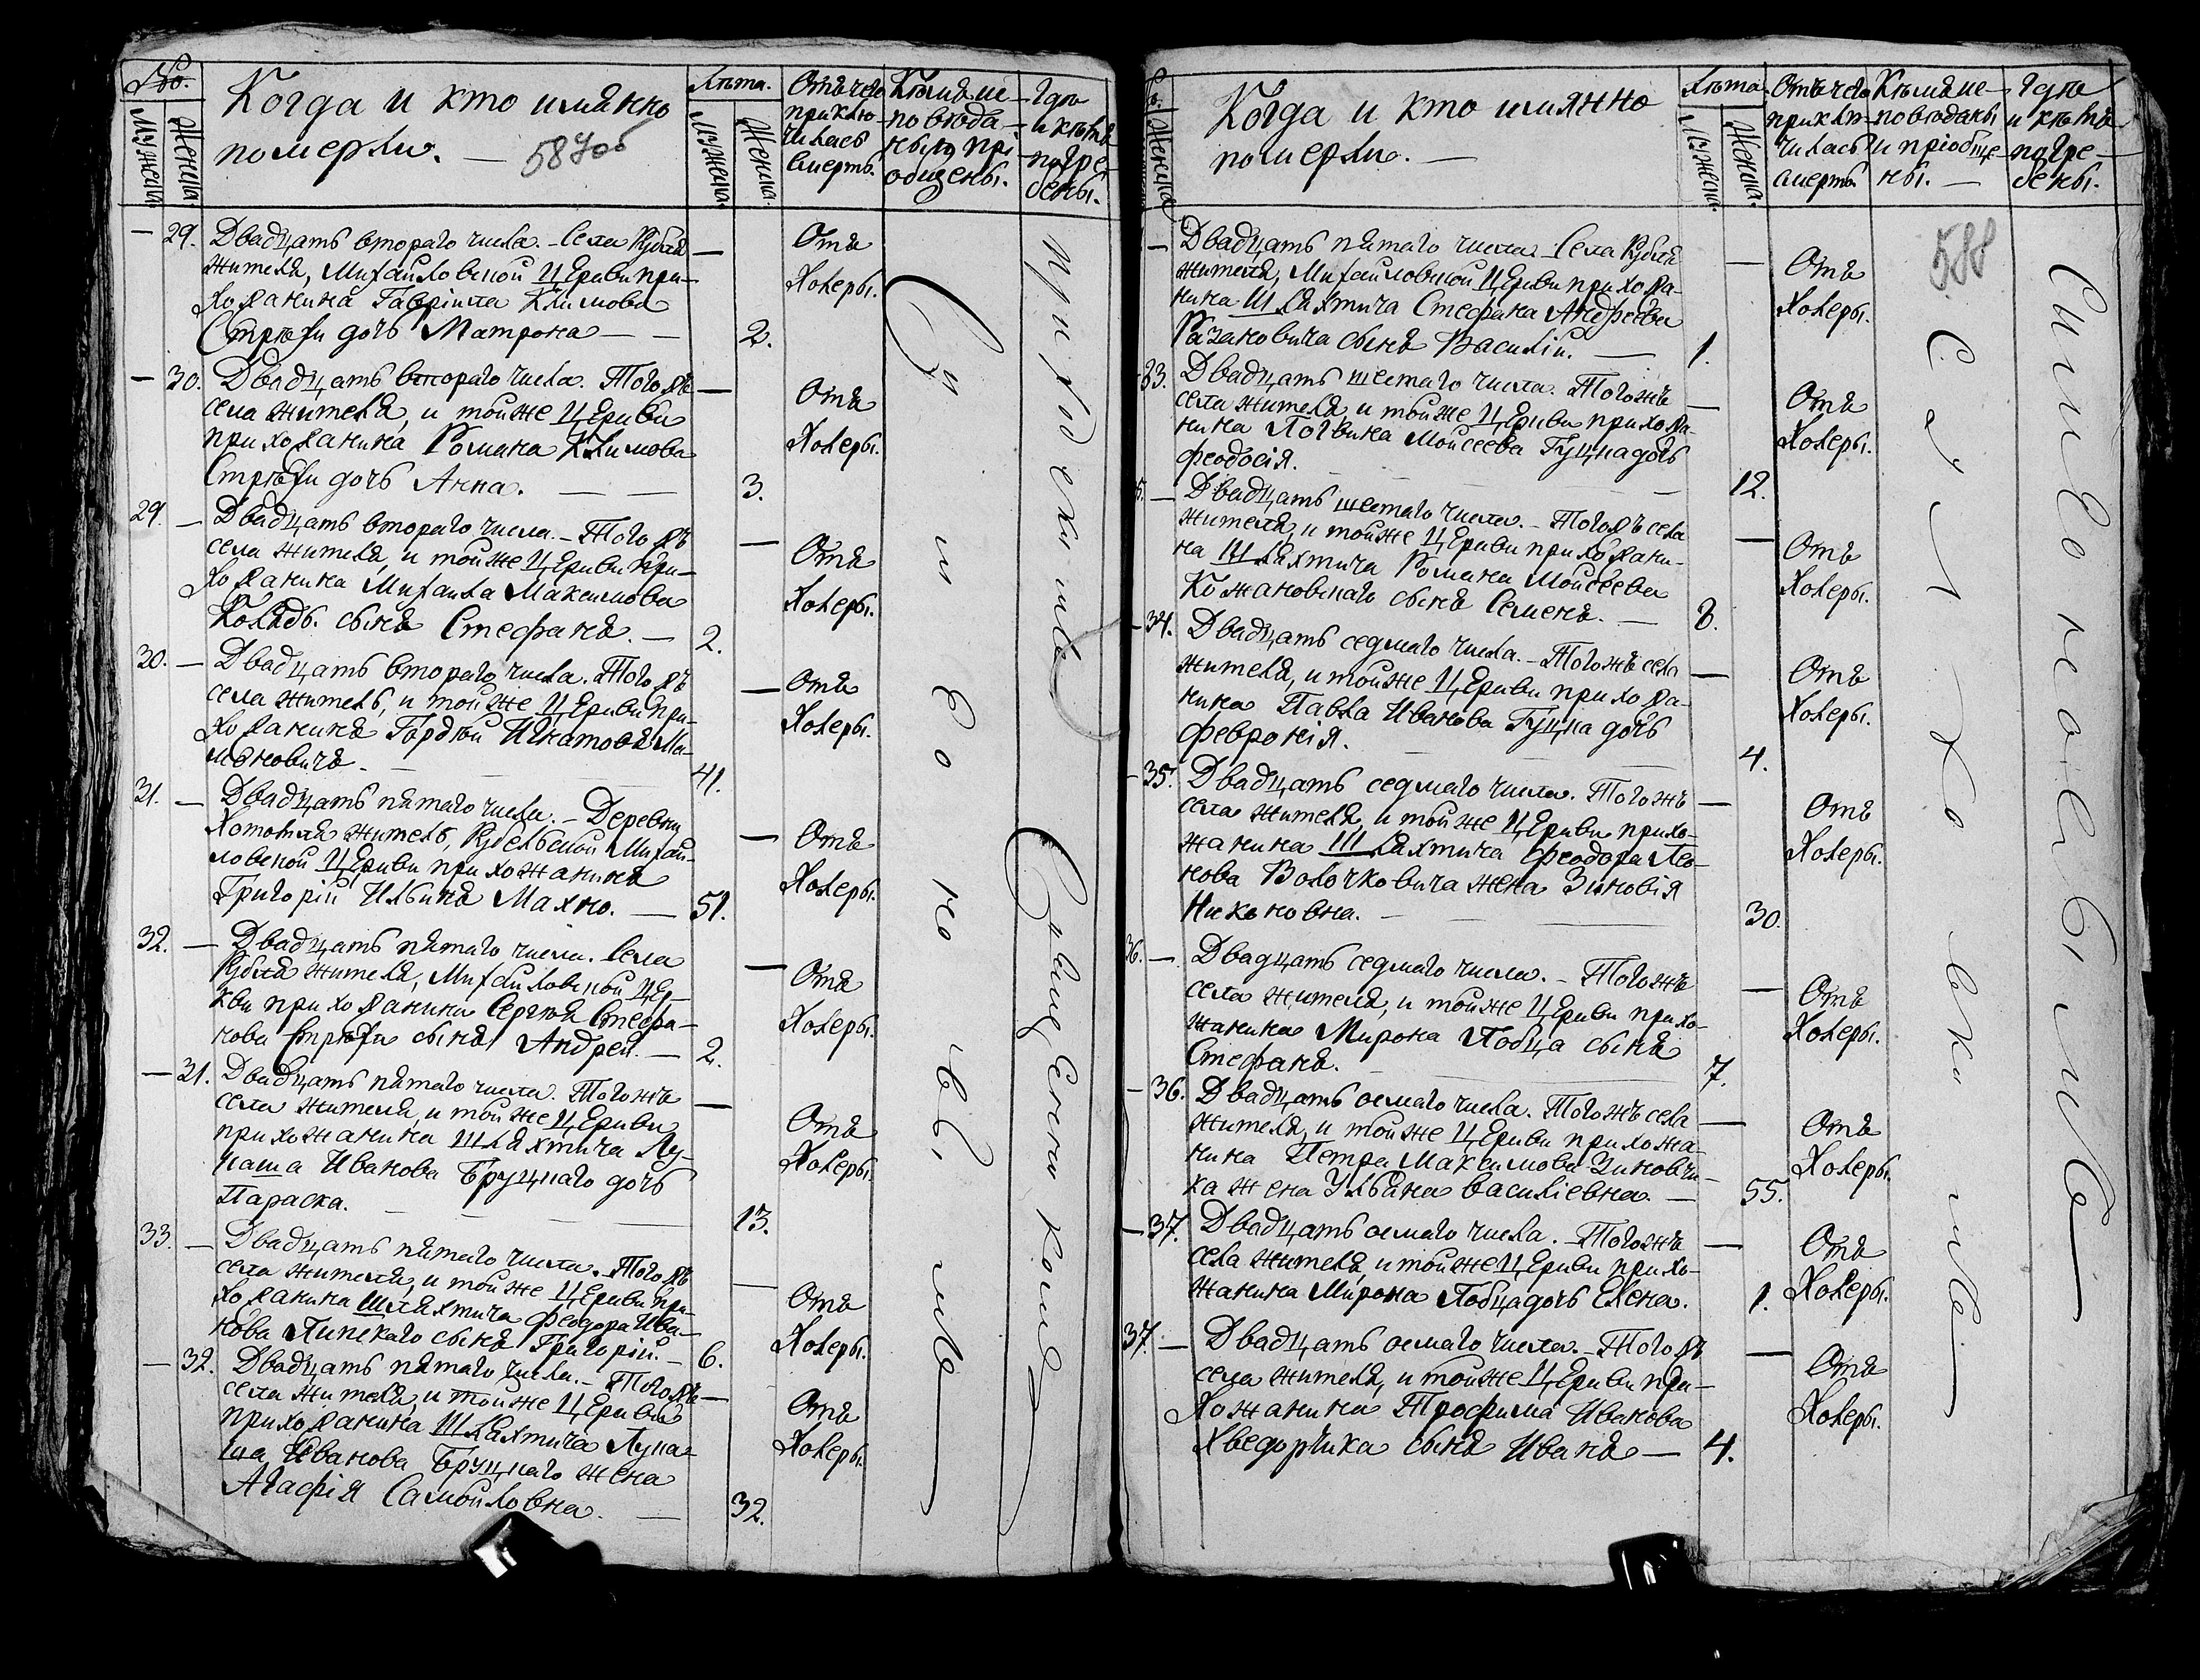 No.
Мужеска.
Женска.
Когда и кто имянно
померли. —
587об
Лѣта.
Мужеска.
Женска.
Отъ чего
приклю-
чилась
смерть.
Кѣмъ ис-
повѣда-
ны и прі-
общены.
Гдѣ
и кѣмъ
погре-
бены.
— 29. Двадцать втораго числа. — Села Рубля
жителя, Михайловской Церкви при-
хожанина Гавріила Климова
Стрѣхи дочь Матрона — — 2.
Отъ
Холеры.
— 30. Двадцать втораго числа. Того жъ
села жителя, и той же Церкви
прихожанина Романа Климова
Стрѣхи дочь Анна. — — 3.
Отъ
Холеры.
29. — Двадцать втораго числа. — Того жъ
села жителя, и той же Церкви при-
хожанина Михаила Максимова
сынъ Стефанъ. — 2.
Отъ
Холеры.
30. — Двадцать втораго числа. Того жъ
села житель, и той же Церкви при-
хожанинъ Гордѣй Игнатовъ Ма-
мановичъ — 41.
Отъ
Холеры.
31. — Двадцать пятаго числа. — Деревни
Хотомля житель, Рубельской Михай-
ловской Церкви прихожанинъ
Григорій Ильинъ Махно. — 51.
Отъ
Холеры.
32. — Двадцать пятаго числа. Села
Рубля жителя, Михайловской Цер-
кви прихожанина Сергѣя Стефа-
нова Стрѣхи сынъ Андрей. — 2.
Отъ
Холеры.
— 31. Двадцать пятаго числа. Того жъ
села жителя, и той же Церкви
прихожанина Шляхтича Лу-
каша Иванова Бруцкаго дочь
Параска. — 13.
Отъ
Холеры.
33. — Двадцать пятаго числа. — Того жъ
села жителя, и той же Церкви при-
хожанина Шляхтича Феодора Ива-
нова Липскаго сынъ Григорій. — 6.
Отъ
Холеры.
— 32. Двадцать пятаго числа. — Того жъ
села жителя, и той же Церкви
прихожанина Шляхтича Лука-
ша Иванова Бруцкаго жена
Агафія Самойловна. — 32.
Отъ
Холеры.
Священникомъ
приходскимъ
Женска
Когда и кто имянно
померли. —
588
Лѣта.
Мужеска.
Женска.
Отъ чего
приклю-
чилась
смерть.
Кѣмъ ис-
повѣданы
и пріобще-
ны. —
Гдѣ
и кѣмъ
погре-
бены.
— Двадцать пятаго числа. Села Рубля
жителя, Михайловской Церкви прихожа-
нина Шляхтича Стефана Андреева
Разановича сынъ Василій. — 1.
Отъ
Холеры.
33. Двадцать шестаго числа. Того жъ
села жителя, и той же Церкви прихожа-
нина Логвина Мойсеева Гуцка дочь
Феодосія. — 12.
Отъ
Холеры.
— Двадцать шестаго числа. — Того жъ села
жителя, и той же Церкви прихожани-
на Шляхтича Романа Мойсеева
Кожановскаго сынъ Семенъ. — 8.
Отъ
Холеры.
— 34. Двадцать седмаго числа. — Того жъ села
жителя, и той же Церкви прихожа-
нина Павла Иванова Гуцка дочь
Февронія. — 4.
Отъ
Холеры.
— 35. Двадцать седмаго числа. Того жъ
села жителя, и той же Церкви прихо-
жанина Шляхтича Феодора Лео-
нова Волочковича жена Зиновія
Никоновна. — 30.
Отъ
Холеры.
36. — Двадцать седмаго числа. — Того жъ
села жителя, и той же Церкви прихо-
жанина Мирона Лобца сынъ
Стефанъ. — 7.
Отъ
Холеры.
— 36. Двадцать осмаго числа. Того жъ села
жителя, и той же Церкви прихожа-
нина Петра Максимова Зиновчи-
ка жена Ульяна Василіевна. — 55.
Отъ
Холеры.
— 37. Двадцать осмаго числа. — Того жъ
села жителя, и той же Церкви прихо-
жанина Мирона Лобца дочь Елена. 1.
Отъ
Холеры.
37. — Двадцать осмаго числа. — Того жъ
села жителя, и той же Церкви при-
хожанина Трофима Иванова
Хведорчика сынъ Иванъ — 4.
Отъ
Холеры.